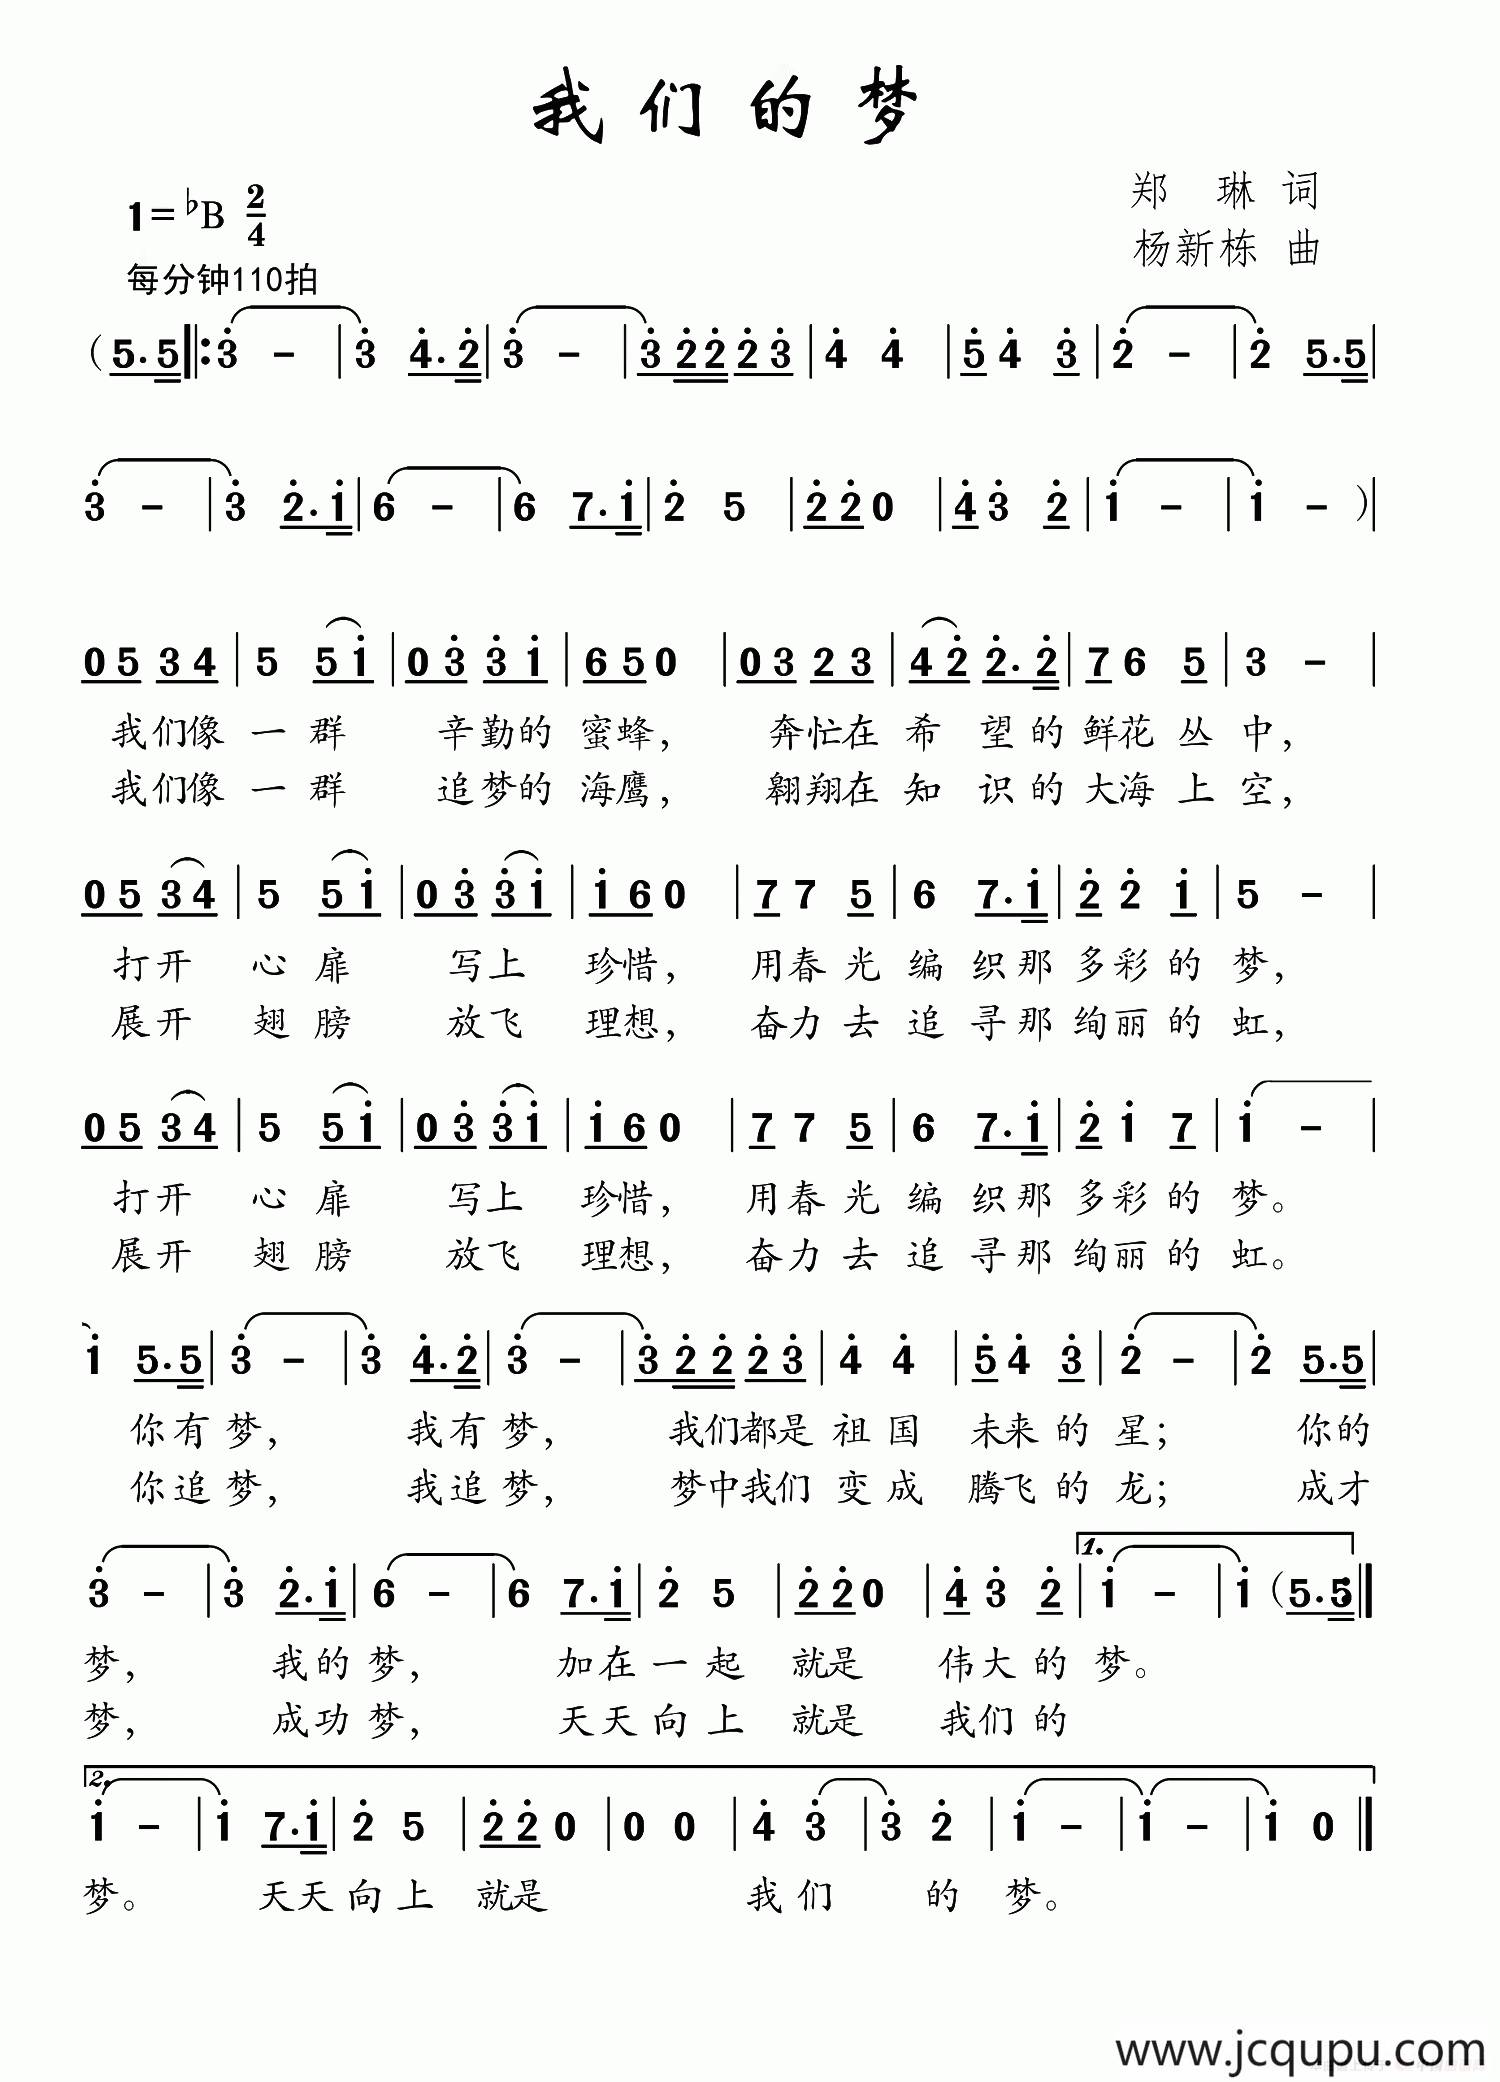 我们的梦
1=♭B 2/4
郑 琳 词
杨新栋 曲
每分钟110拍
(5.5|:3 - |3 4.2|3 - |3 2 2 2 3|4 4 |5 4 3|2 - |2 5.5|
3 - |3 2.1|6 - |6 7.1|2 5 |2 2 0 |4 3 2|1 - |1 - )|
0 5 3 4|5 5 1|0 3 3 1|6 5 0 |0 3 2 3|4 2 2.2|7 6 5|3 - |
我们像一群 辛勤的蜜蜂， 奔忙在希望的鲜花丛中，
我们像一群 追梦的海鹰， 翱翔在知识的大海上空，
0 5 3 4|5 5 1|0 3 3 1|1 6 0 |7 7 5|6 7.1|2 2 1|5 - |
打开心扉 写上珍惜， 用春光编织那多彩的梦，
展开翅膀 放飞理想， 奋力去追寻那绚丽的虹，
0 5 3 4|5 5 1|0 3 3 1|1 6 0 |7 7 5|6 7.1|2 1 7|1 - |
打开心扉 写上珍惜， 用春光编织那多彩的梦。
展开翅膀 放飞理想， 奋力去追寻那绚丽的虹。
1 5.5|3 - |3 4.2|3 - |3 2 2 2 3|4 4 |5 4 3|2 - |2 5.5|
你有梦， 我有梦， 我们都是祖国未来的星； 你的
你追梦， 我追梦， 梦中我们变成腾飞的龙； 成才
1.
3 - |3 2.1|6 - |6 7.1|2 5 |2 2 0 |4 3 2|1 - |1 (5.5:|
梦， 我的梦， 加在一起就是伟大的梦。
梦， 成功梦， 天天向上就是我们的
2.
1 - |1 7.1|2 5 |2 2 0 |0 0 |4 3|3 2 |1 - |1 - |1 0 ‖
梦。 天天向上就是 我们的梦。
www.jcqupu.com